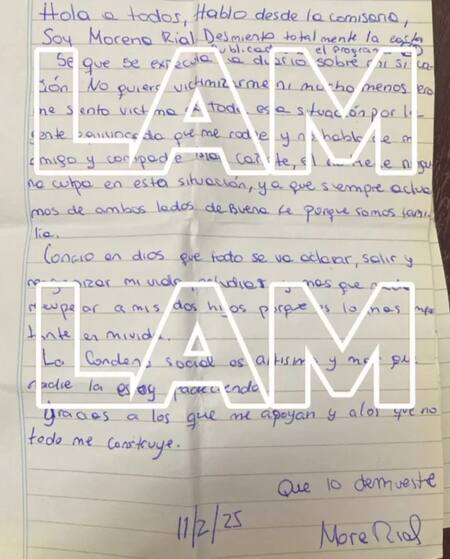 Hola a todos, Hablo desde la comisaria,
Soy Morena Rial Desmiento totalmente la carta
publicada el programa
Se que se especula a diario sobre mi situa
ción. No quiero victimizarme ni mucho menos pero
me siento victima de toda esa situación por la
gente equivocada que me rodee y no hablo de mi
amigo y compadre el no tiene ningu
na culpa en esta situación, ya que siempre actua
mos de ambos lados de Buena fe porque somos fami
lia.
Confio en dios que todo se va aclarar, salir y
organizar mi vida, estudiar y mas que
recuperar a mis dos hijos porque es lo mas impo
tante en mi vida.
La Condena social es altisima y mas que
nadie la estoy padeciendo
Gracias a los que me apoyan y a los que no
todo me construye.
Que lo demuestre
11/2/25
More Rial
LAM
LAM